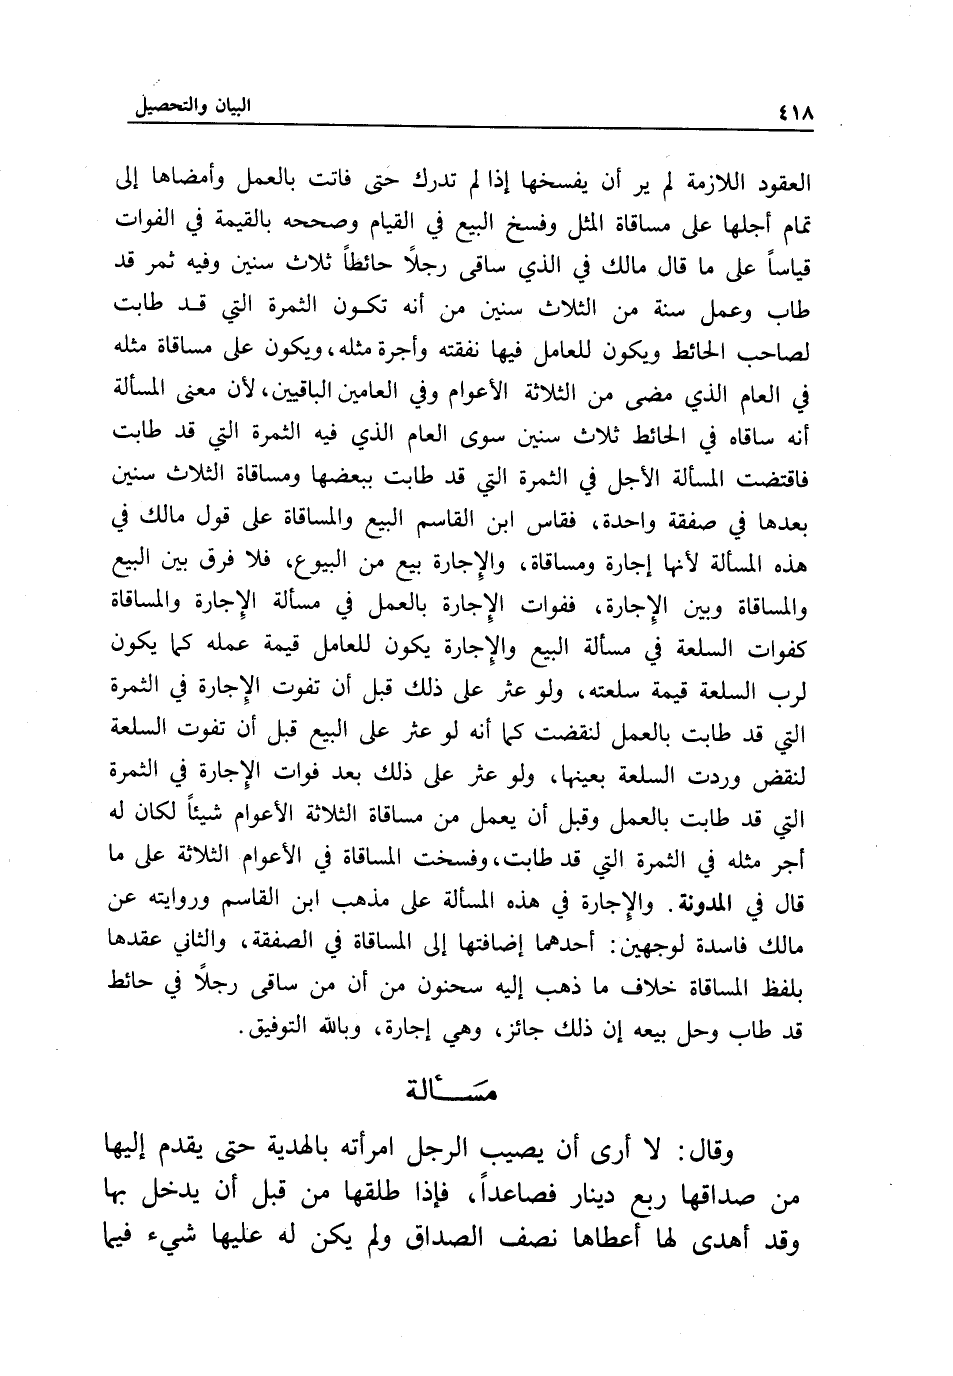 ٤١٨
البيان والتحصيل
العقود اللازمة لم ير أن يفسخها إذا لم تدرك حتى فاتت بالعمل وأمضاها إلى
تمام أجلها على مساقاة المثل وفسخ البيع في القيام وصححه بالقيمة في الفوات
قياساً على ما قال مالك في الذي ساقى رجلًا حائطاً ثلاث سنين وفيه ثمر قد
طاب وعمل سنة من الثلاث سنين من أنه تكون الثمرة التي قد طابت
لصاحب الحائط ويكون للعامل فيها نفقته وأجرة مثله، ويكون على مساقاة مثله
في العام الذي مضى من الثلاثة الأعوام وفي العامين الباقيين، لأن معنى المسألة
أنه ساقاه في الحائط ثلاث سنين سوى العام الذي فيه الثمرة التي قد طابت
فاقتضت المسألة الأجل في الثمرة التي قد طابت ببعضها ومساقاة الثلاث سنين
بعدها في صفقة واحدة، فقاس ابن القاسم البيع والمساقاة على قول مالك في
هذه المسألة لأنها إجارة ومساقاة، والإجارة بيع من البيوع، فلا فرق بين البيع
والمساقاة وبين الإجارة، ففوات الإجارة بالعمل في مسألة الإجارة والمساقاة
كفوات السلعة في مسألة البيع والإجارة يكون للعامل قيمة عمله كما يكون
لرب السلعة قيمة سلعته، ولو عثر على ذلك قبل أن تفوت الإجارة في الثمرة
التي قد طابت بالعمل لنقضت كما أنه لو عثر على البيع قبل أن تفوت السلعة
لنقض وردت السلعة بعينها، ولو عثر على ذلك بعد فوات الإجارة في الثمرة
التي قد طابت بالعمل وقبل أن يعمل من مساقاة الثلاثة الأعوام شيئاً لكان له
أجر مثله في الثمرة التي قد طابت، وفسخت المساقاة في الأعوام الثلاثة على ما
قال في المدونة. والإجارة في هذه المسألة على مذهب ابن القاسم وروايته عن
مالك فاسدة لوجهين: أحدهما إضافتها إلى المساقاة في الصفقة، والثاني عقدها
بلفظ المساقاة خلاف ما ذهب إليه سحنون من أن من ساقى رجلًا في حائط
قد طاب وحل بيعه إن ذلك جائز، وهي إجارة، وبالله التوفيق.
مَسْـــألة
وقال: لا أرى أن يصيب الرجل امرأته بالهدية حتى يقدم إليها
من صداقها ربع دينار فصاعداً، فإذا طلقها من قبل أن يدخل بها
وقد أهدى لها أعطاها نصف الصداق ولم يكن له عليها شيء فيما